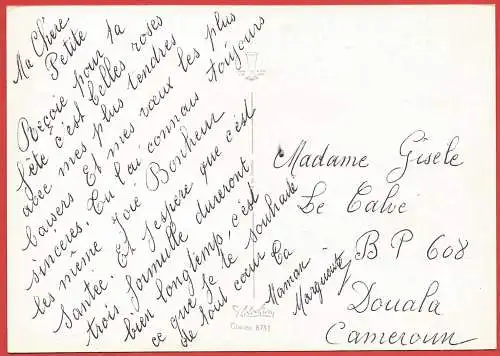 Ma Chère
Petite
Reçoie pour ta
fête c'est belles roses
avec mes plus tendres
baisers Et mes vœux les plus
sincères. Tu l'ai connais toujours
les même Joie Bonheur
Santée. Et J'espère que c'est
trois formulle dureront
bien longtemp, c'est
ce que je te souhaite
de tout cœur Ta
Maman
Marguerite
Madame Gisele
Le Calvé
BP 608
Douala
Cameroun